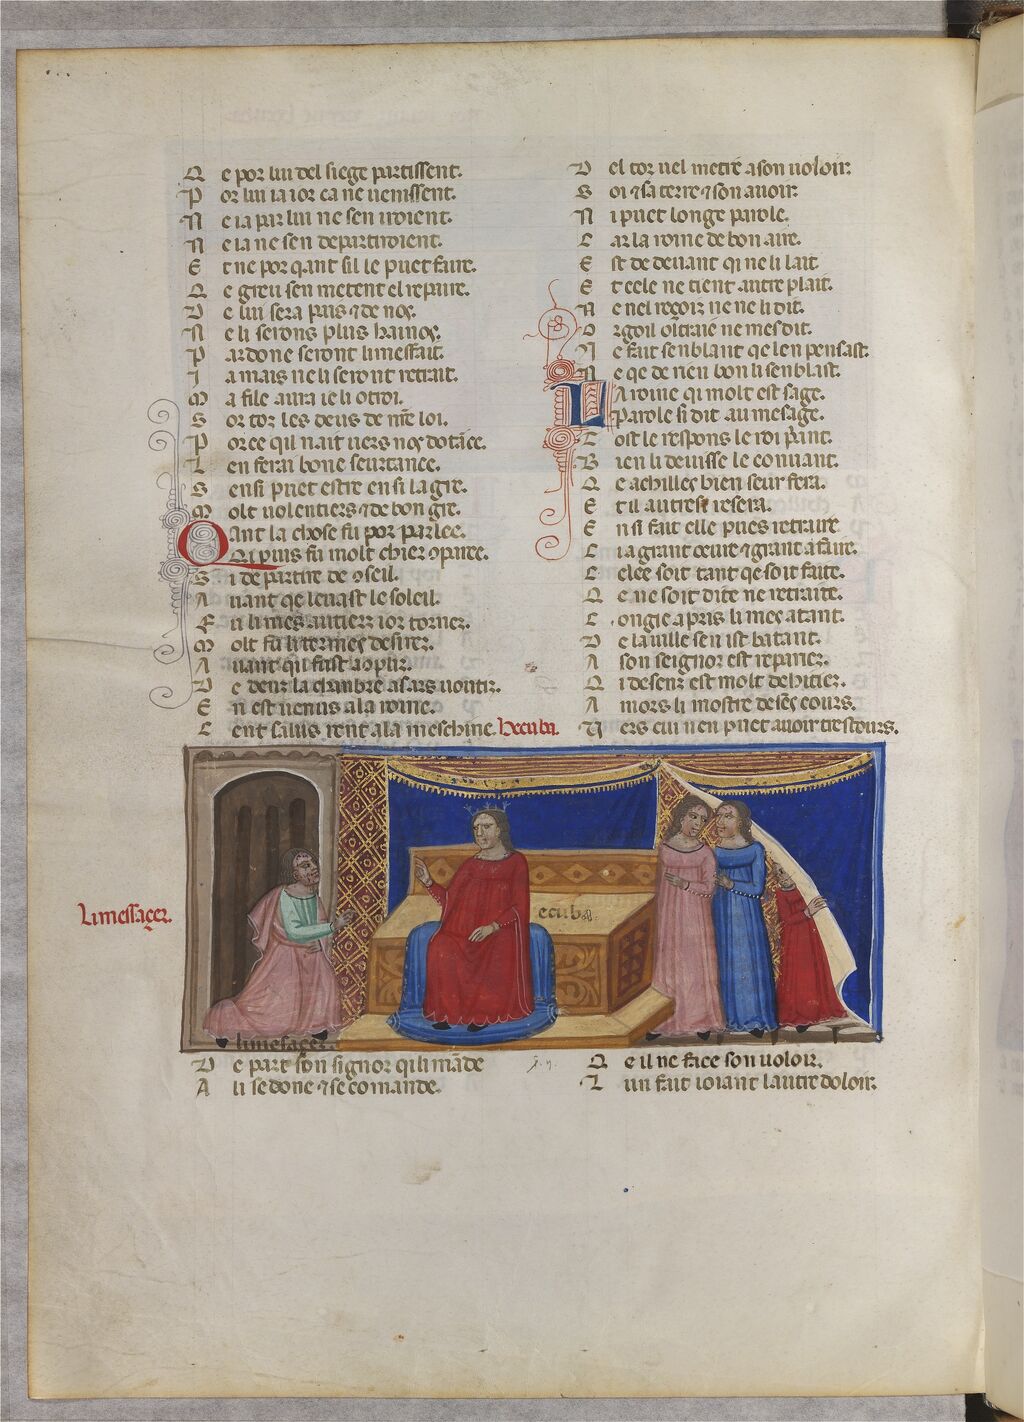 Q e por lui del siege partissent.
P or lui ia ior ca ne uenissent.
N e ia par lui ne sen iroient.
N e ia ne sen departiroient.
E t ne por qant sil le puet faire.
Q e greu sen metent el repaire.
D e lui sera pais ⁊ de nos.
N e li serons plus hainos.
P ardone seront li mesfait.
I a mais ne li seront retrait.
M a file aura ie li otroi.
S or toz les deus de nr̃e loi.
P or ce qil nait uers nos dotãce.
L en ferai bone seurtance.
S ensi puet estre ensi la gre.
M olt uolentiers ⁊ de bon gre.
Q ant la chose fu por parlee.
Q i puis fu molt chier ↄparee.
S i de partire de ↄseil.
A uant qe leuast le soleil.
F u li mes autierz ior tornez.
M olt fu li termes desirez.
A uant qui fust aↄplir.
D e denz la chanbre asars uoutiz.
E n est uenus a la roine.
C ent saluz rent a la meschine. Hecuba.
D el tor uel metre a son uoloir.
S oi ⁊ sa terre ⁊ son auoir.
N i puet longe parole.
C ar la roine de bon aire.
E st de deuant qi ne li lait
E t cele ne tient autre plait.
N e nel reçoit ne ne li dit.
O rgoil oltraie ne mesdit.
N e fait senblant qe len pensast.
N e qe de rien bon li senblast.
L A roine qi molt est sage.
Parole si dit au mesage.
T ost le respons le roi p̃ant.
B ien li deuisse le conuant.
Q e achilles bien seur sera.
E t il autresi resera.
E nsi fait elle pues retraire
C i a grant oeure ⁊ grant a faire.
C elee soit tant qe soit faite.
Q e ne soit dite ne retraite.
C ongie a pris li mes atant.
D e la uille sen ist batant.
A son seignor est repariez.
Q i desenz est molt dehitiez.
A mors li mostre de ses cours.
V ers cui nen puet auoir trestours.
Li messager.
ecuba
limesager.
D e part son signor qi li mãde
A li se done ⁊ se comande.
Q e il ne face son uoloir.
L un fait ioiant lautre doloir.